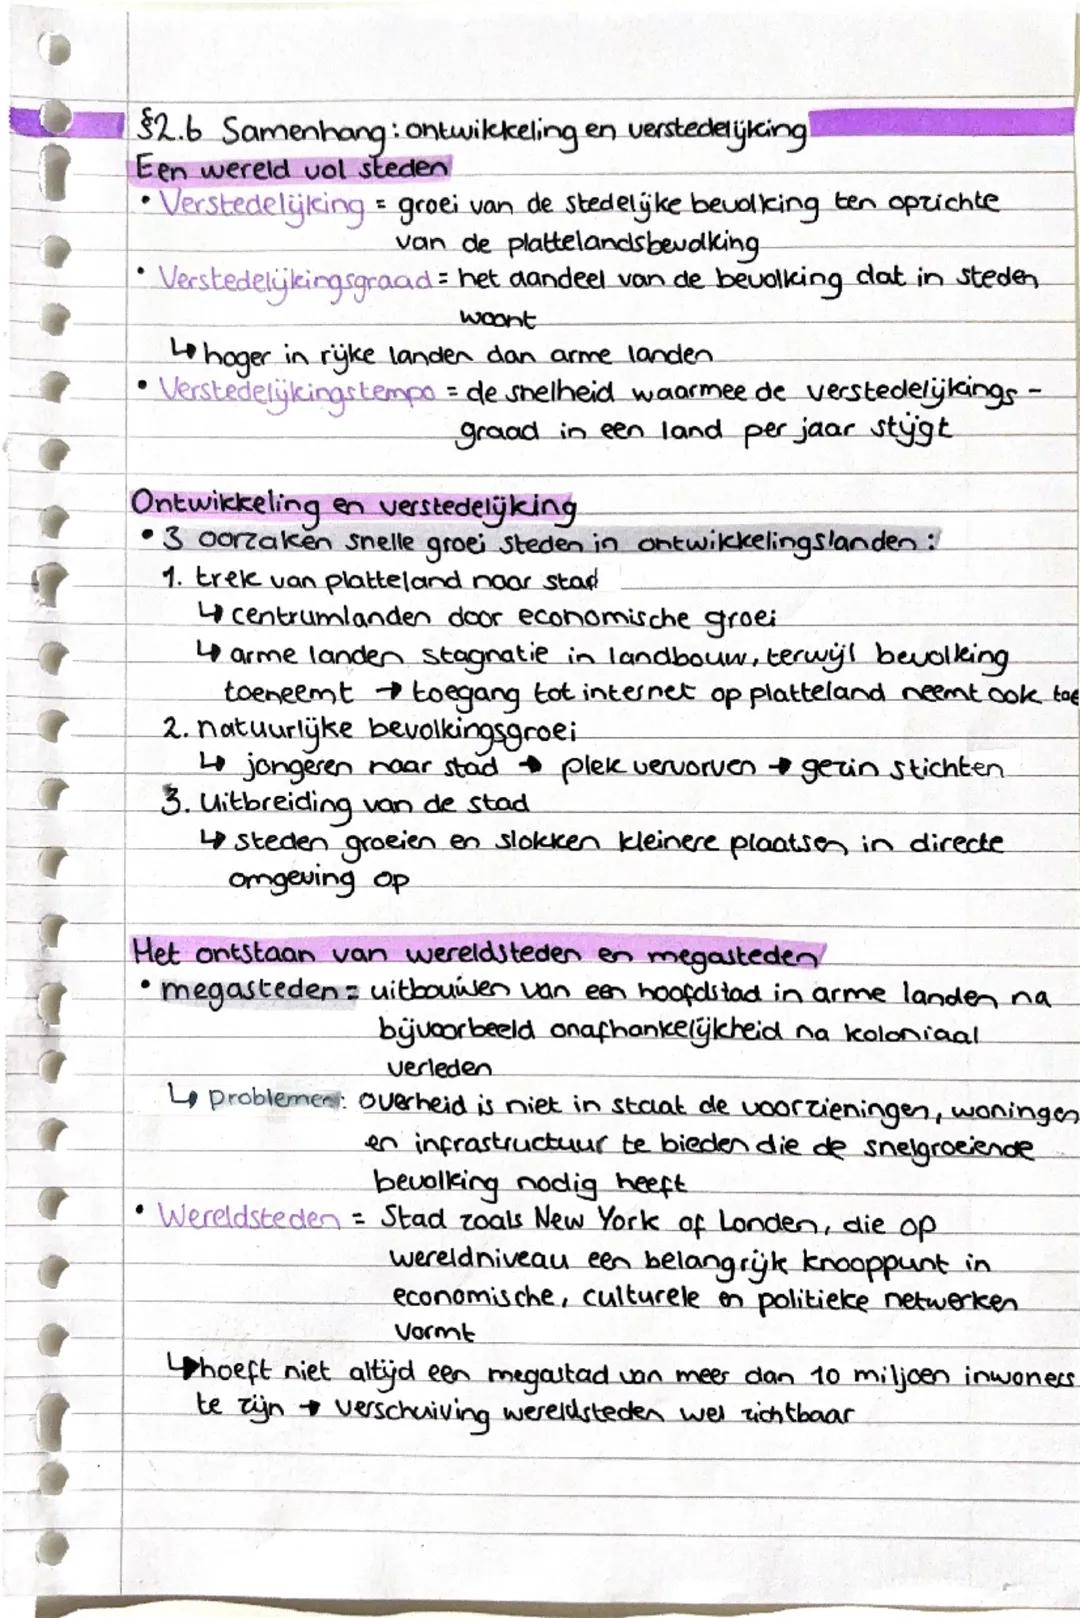 §2.6 Samenhang: ontwikkeling en verstedelijking
Een wereld vol steden
• Verstedelijking = groei van de stedelijke bevolking ten opzichte
van de plattelandsbevolking
• Verstedelijkingsgraad = het aandeel van de bevolking dat in steden
woont
↳ hoger in rijke landen dan arme landen
• Verstedelijkingstempo = de snelheid waarmee de verstedelijkings-
graad in een land per jaar stijgt
Ontwikkeling en verstedelijking
• 3 oorzaken snelle groei steden in ontwikkelingslanden:
1. trek van platteland naar stad
↳ centrumlanden door economische groei
↳ arme landen stagnatie in landbouw, terwijl bevolking
toeneemt → toegang tot internet op platteland neemt ook toe
2. natuurlijke bevolkingsgroei
↳ jongeren naar stad → plek verworven → gezin stichten
3. Uitbreiding van de stad
↳ steden groeien en slokken kleinere plaatsen in directe
omgeving op
Het ontstaan van wereldsteden en megasteden
• megasteden = uitbouwen van een hoofdstad in arme landen na
bijvoorbeeld onafhankelijkheid na koloniaal
verleden
↳ problemen: overheid is niet in staat de voorzieningen, woningen
en infrastructuur te bieden die de snelgroeiende
bevolking nodig heeft
• Wereldsteden = Stad zoals New York of Londen, die op
wereldniveau een belangrijk knooppunt in
economische, culturele en politieke netwerken
vormt
↳ hoeft niet altijd een megastad van meer dan 10 miljoen inwoners
te zijn → verschuiving wereldsteden wel zichtbaar